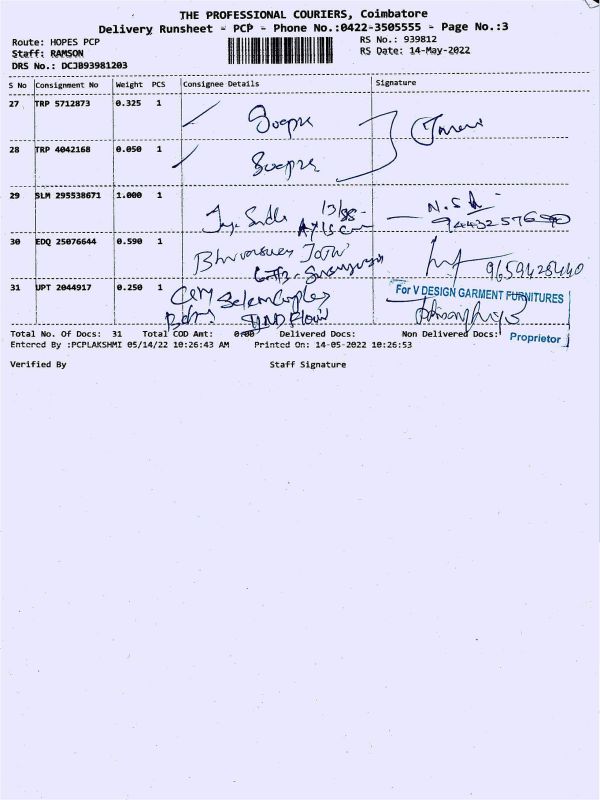 THE PROFESSIONAL COURIERS, Coimbatore
Delivery Runsheet - PCP - Phone No.:0422-3505555 - Page No.:3
Route: HOPES PCP
RS No.: 939812
Staff: RAMSON
RS Date: 14-May-2022
DRS No.: DCJB93981203
S No Consignment No Weight PCS Consignee Details Signature
27 TRP 5712873 0.325 1
28 TRP 4042168 0.050 1
29 SLM 295538671 1.000 1
30 EDQ 25076644 0.590 1 9659428440
31 UPT 2044917 0.250 1
For V DESIGN GARMENT FURNITURES
Proprietor
Total No. Of Docs: 31 Total COD Amt: 0.00 Delivered Docs: Non Delivered Docs:
Entered By :PCPLAKSHMI 05/14/22 10:26:43 AM Printed On: 14-05-2022 10:26:53
Verified By Staff Signature